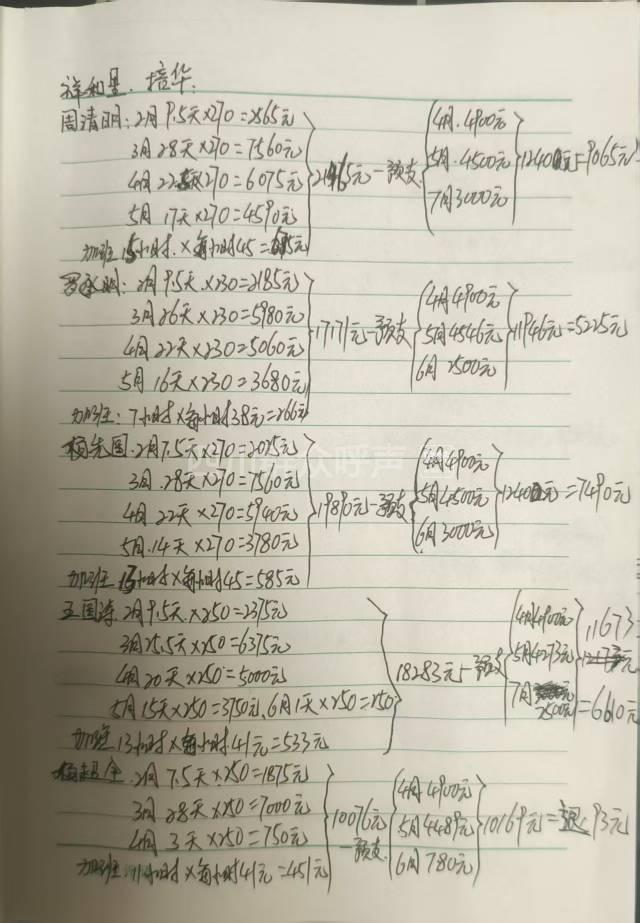 祥和里. 培华:
周清明: 2月 9.5天×270=2565元
3月 28天×270=7560元
4月 22.5天×270=6075元
5月 17天×270=4590元
加班 15小时×每小时45=675元
21465元一预支
4月.4900元
5月.4500元
7月3000元
12400元=9065元
2月9.5天×230=2185元
3月26天×230=5980元
4月22天×230=5060元
5月16天×230=3680元
加班: 7小时×每小时38元=266元
17171元一预支
4月4900元
5月4546元
6月2500元
11946元=5225元
杨先国.2月7.5天×270=2025元
3月.28天×270=7560元
4月22天×270=5940元
5月.14天×270=3780元
加班 13小时×每小时45=585元
19890元一预支
4月4900元
5月4500元
6月3000元
12400元=7490元
王国涛.2月9.5天×250=2375元
3月25.5天×250=6375元
4月20天×250=5000元
5月15天×250=3750元、6月1天×250=250
加班 13小时×每小时41元=533元
18283元一预支
4月4900元
5月4273元
7月
2500元
11673
=6610元
2月7.5天×250=1875元
3月28天×250=7000元
4月3天×250=750元
加班: 11小时×每小时41元=451元
10076元
一预支
4月4900元
5月4489元
6月780元
10169元=退93元